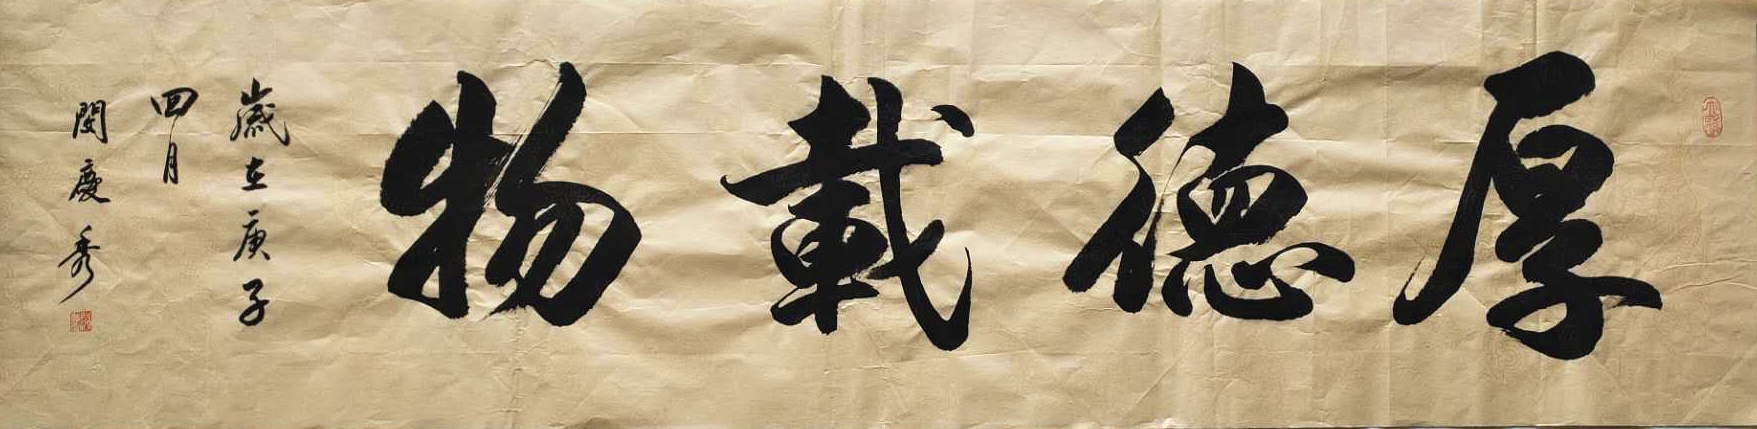 厚德載物
歲在庚子
四月
閔慶秀